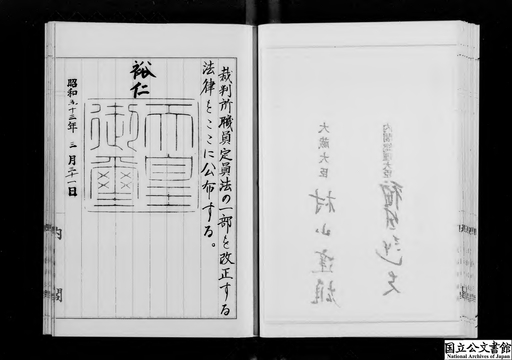 裁判所職員定員法の一部を改正する
法律をここに公布する。
裕仁
天皇
御璽
昭和五十三年三月三十一日
内閣
大蔵大臣 村山達雄
内閣総理大臣 福田赳夫
国立公文書館
National Archives of Japan